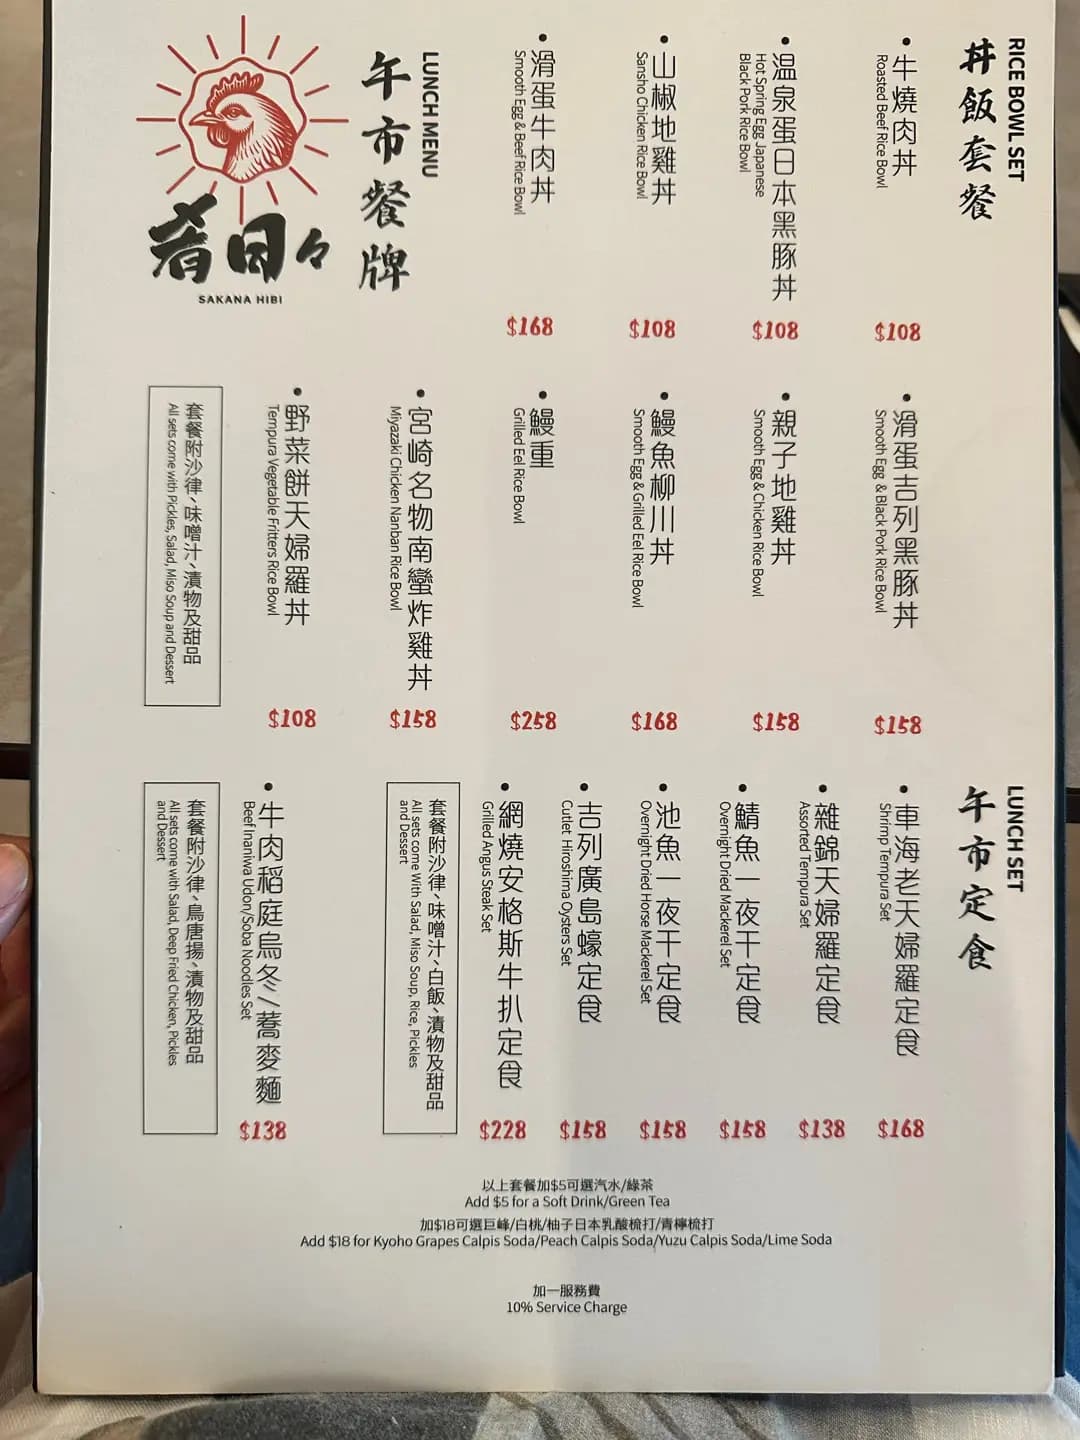 RICE BOWL SET
丼飯套餐
牛燒肉丼
Roasted Beef Rice Bowl
$108
温泉蛋日本黑豚丼
Hot Spring Egg Japanese
Black Pork Rice Bowl
$108
山椒地雞丼
Sansho Chicken Rice Bowl
$108
滑蛋牛肉丼
Smooth Egg & Beef Rice Bowl
$168
LUNCH MENU
午市餐牌
肴日々
SAKANA HIBI
滑蛋吉列黑豚丼
Smooth Egg & Black Pork Rice Bowl
$158
親子地雞丼
Smooth Egg & Chicken Rice Bowl
$158
鰻魚柳川丼
Smooth Egg & Grilled Eel Rice Bowl
$168
鰻重
Grilled Eel Rice Bowl
$258
宮崎名物南蠻炸雞丼
Miyazaki Chicken Nanban Rice Bowl
$158
野菜餅天婦羅丼
Tempura Vegetable Fritters Rice Bowl
$108
套餐附沙律、味噌汁、漬物及甜品
All sets come with Pickles, Salad, Miso Soup and Dessert
LUNCH SET
午市定食
車海老天婦羅定食
Shrimp Tempura Set
$168
雜錦天婦羅定食
Assorted Tempura Set
$138
鯖魚一夜干定食
Overnight Dried Mackerel Set
$158
池魚一夜干定食
Overnight Dried Horse Mackerel Set
$158
吉列廣島蠔定食
Cutlet Hiroshima Oysters Set
$158
網燒安格斯牛扒定食
Grilled Angus Steak Set
$228
套餐附沙律、味噌汁、白飯、漬物及甜品
All sets come With Salad, Miso Soup, Rice, Pickles
and Dessert
牛肉稻庭烏冬/蕎麥麵
Beef Inaniwa Udon/Soba Noodles Set
$138
套餐附沙律、鳥唐揚、漬物及甜品
All sets come with Salad, Deep Fried Chicken, Pickles
and Dessert
以上套餐加$5可選汽水/綠茶
Add $5 for a Soft Drink/Green Tea
加$18可選巨峰/白桃/柚子日本乳酸梳打/青檸梳打
Add $18 for Kyoho Grapes Calpis Soda/Peach Calpis Soda/Yuzu Calpis Soda/Lime Soda
加一服務費
10% Service Charge